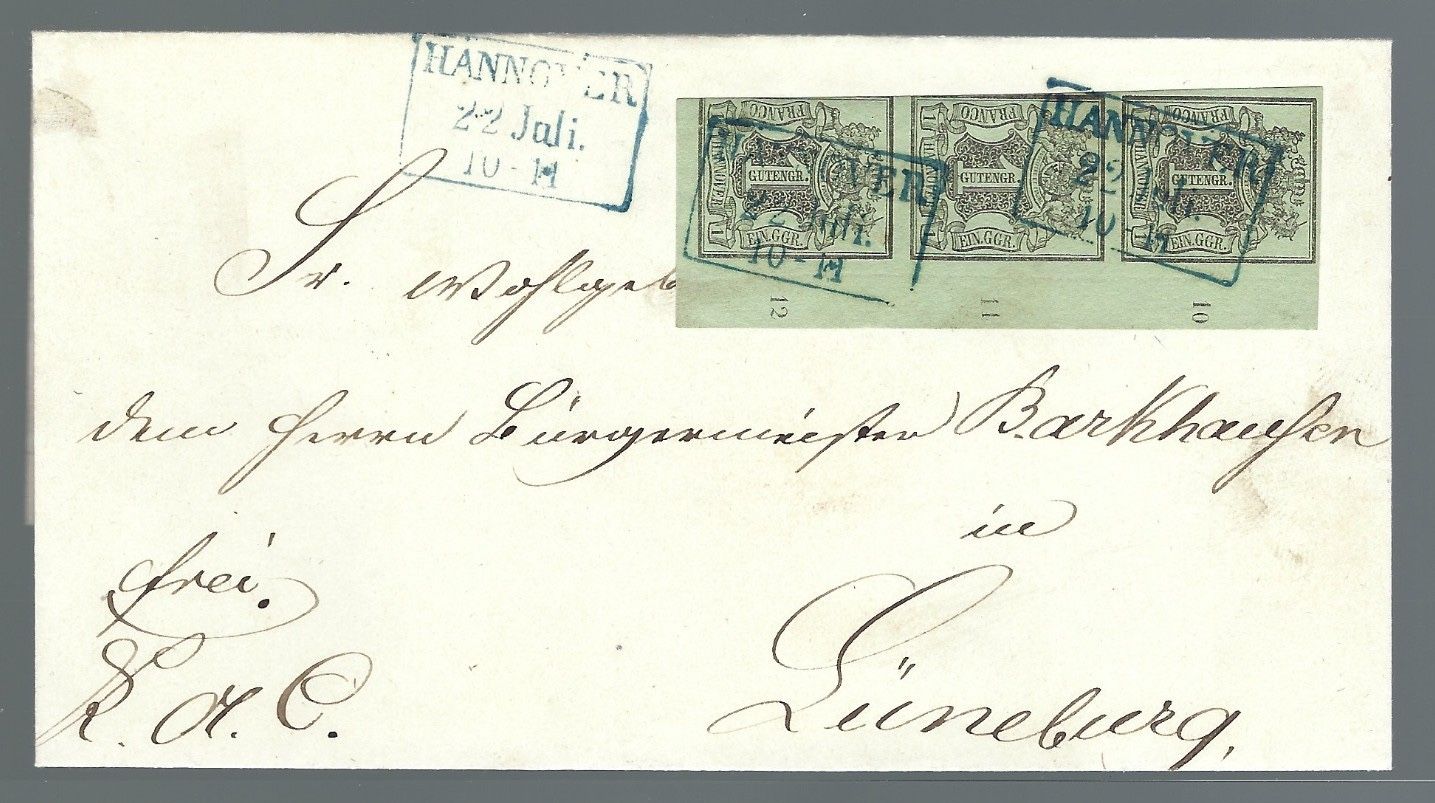 HANNOVER
22 Juli.
10 - 11
FRANCO FRANCO FRANCO
HANNOVER HANNOVER HANNOVER
1 GUTENGR. 1 GUTENGR. 1 GUTENGR.
EIN.GGR. EIN.GGR. EIN.GGR.
HANNOVER
22 Juli.
10 - 11
HANNOVER
22 Juli.
10 - 11
12 11 10
Sr. Wohlgeb
dem Herrn Bürgermeister Barkhausen
in
frei.
Lüneburg.
K. A. C.